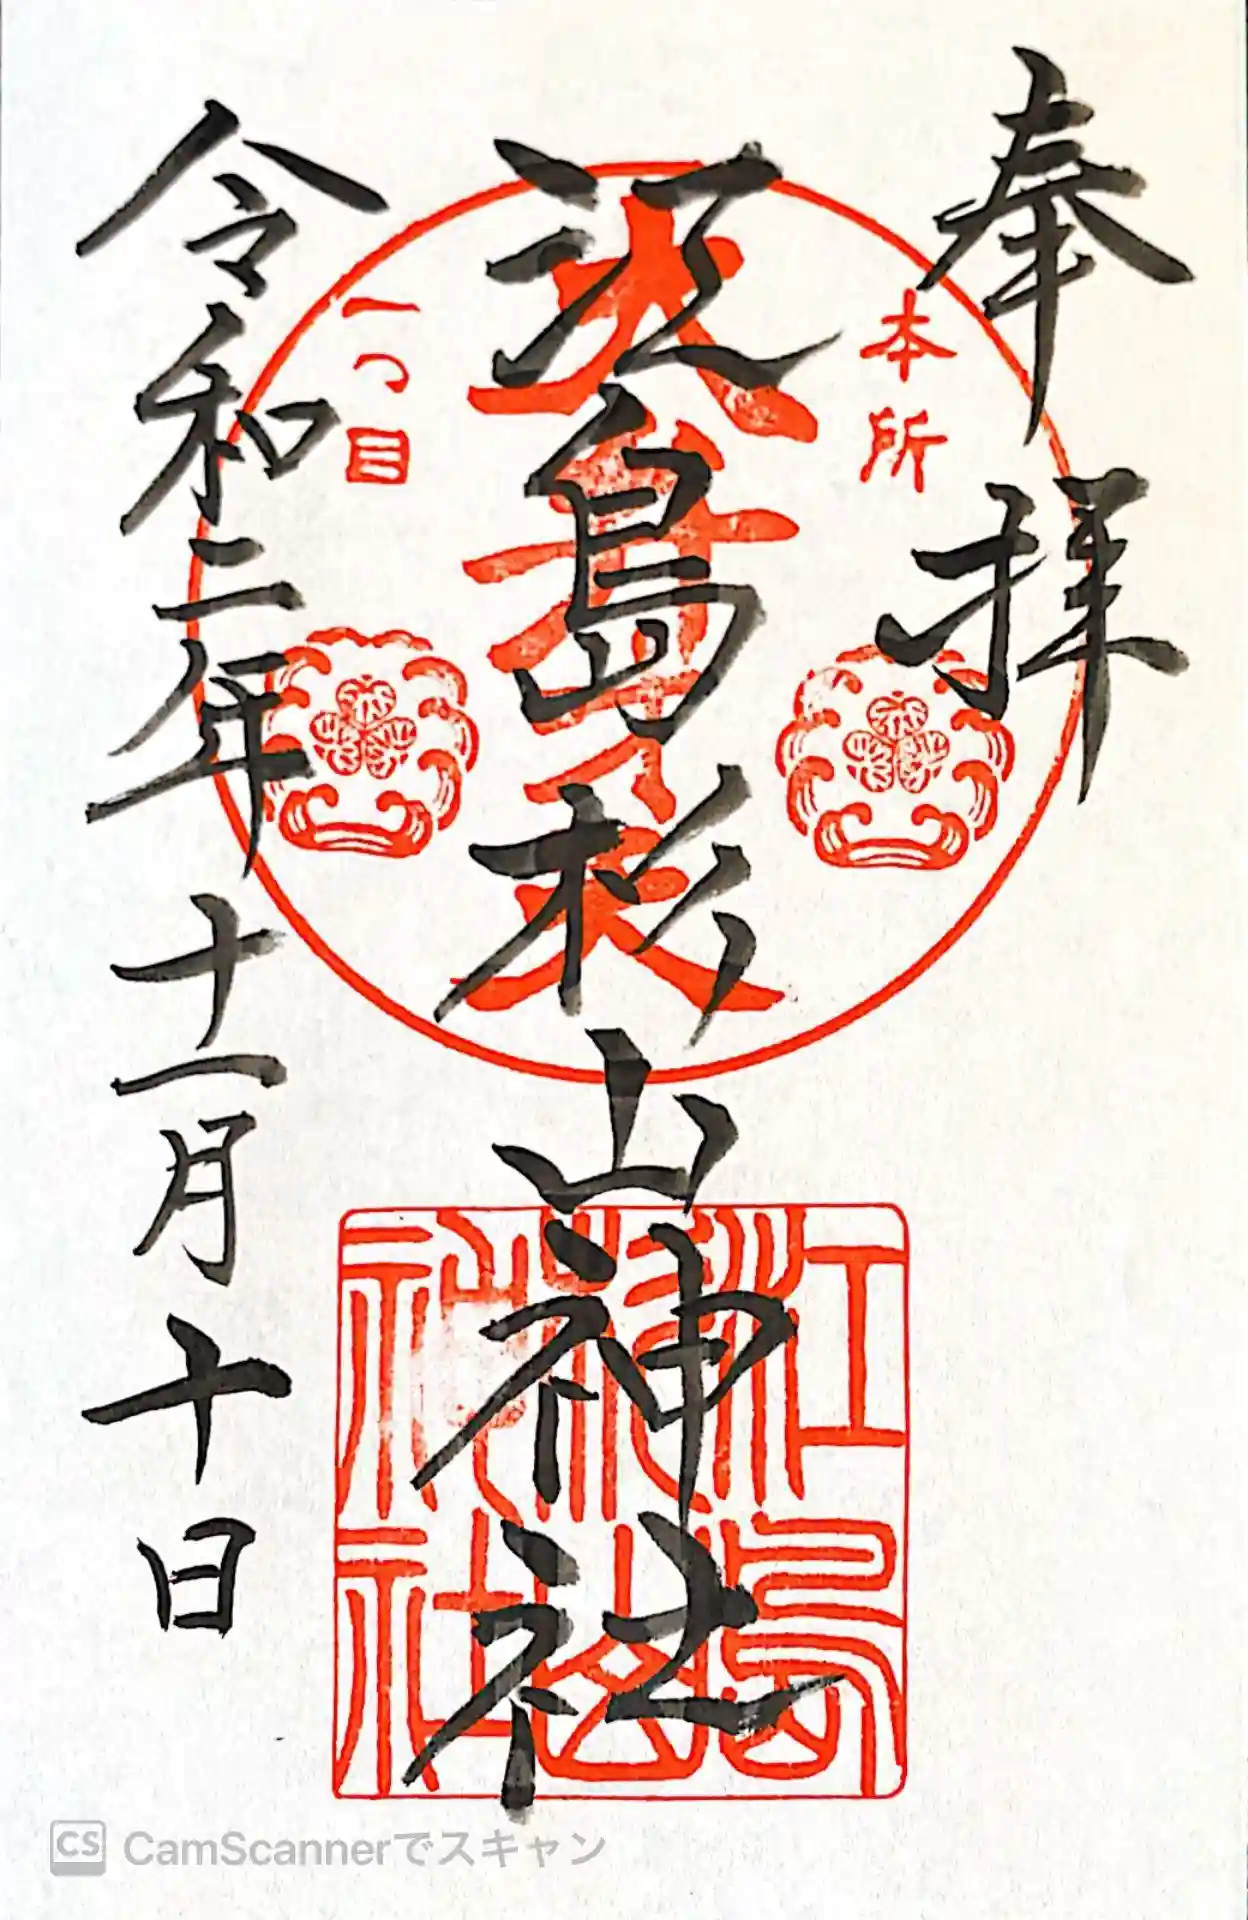 奉拝
本所
江島杉山神社
大弁才天
一つ目
令和二年十一月十日
江島
杉山
神社
CamScannerでスキャン